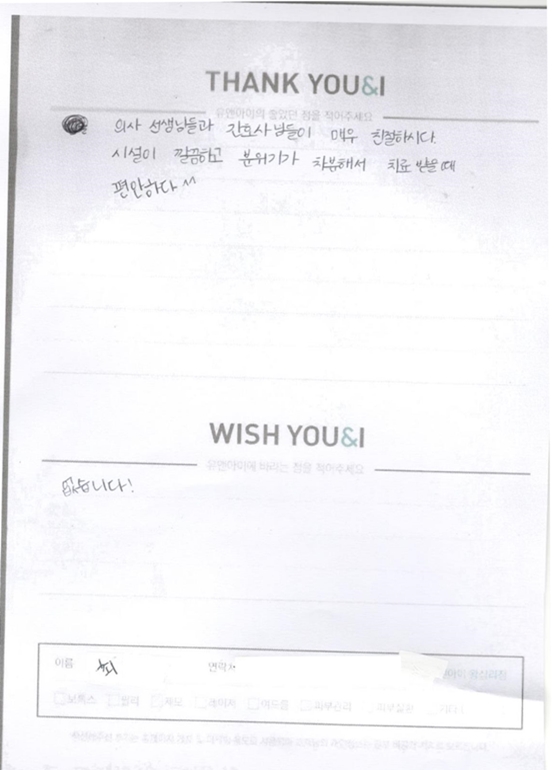 THANK YOU&I
유앤아이의 좋았던 점을 적어주세요
의사 선생님들과 간호사님들이 매우 친절하시다.
시설이 깔끔하고 분위기가 차분해서 치료 받을 때
편안하다 ^^
WISH YOU&I
유앤아이에 바라는 점을 적어주세요
없습니다!
이름 연락처
보톡스 필러 제모 레이저 여드름 피부관리 피부질환 기타